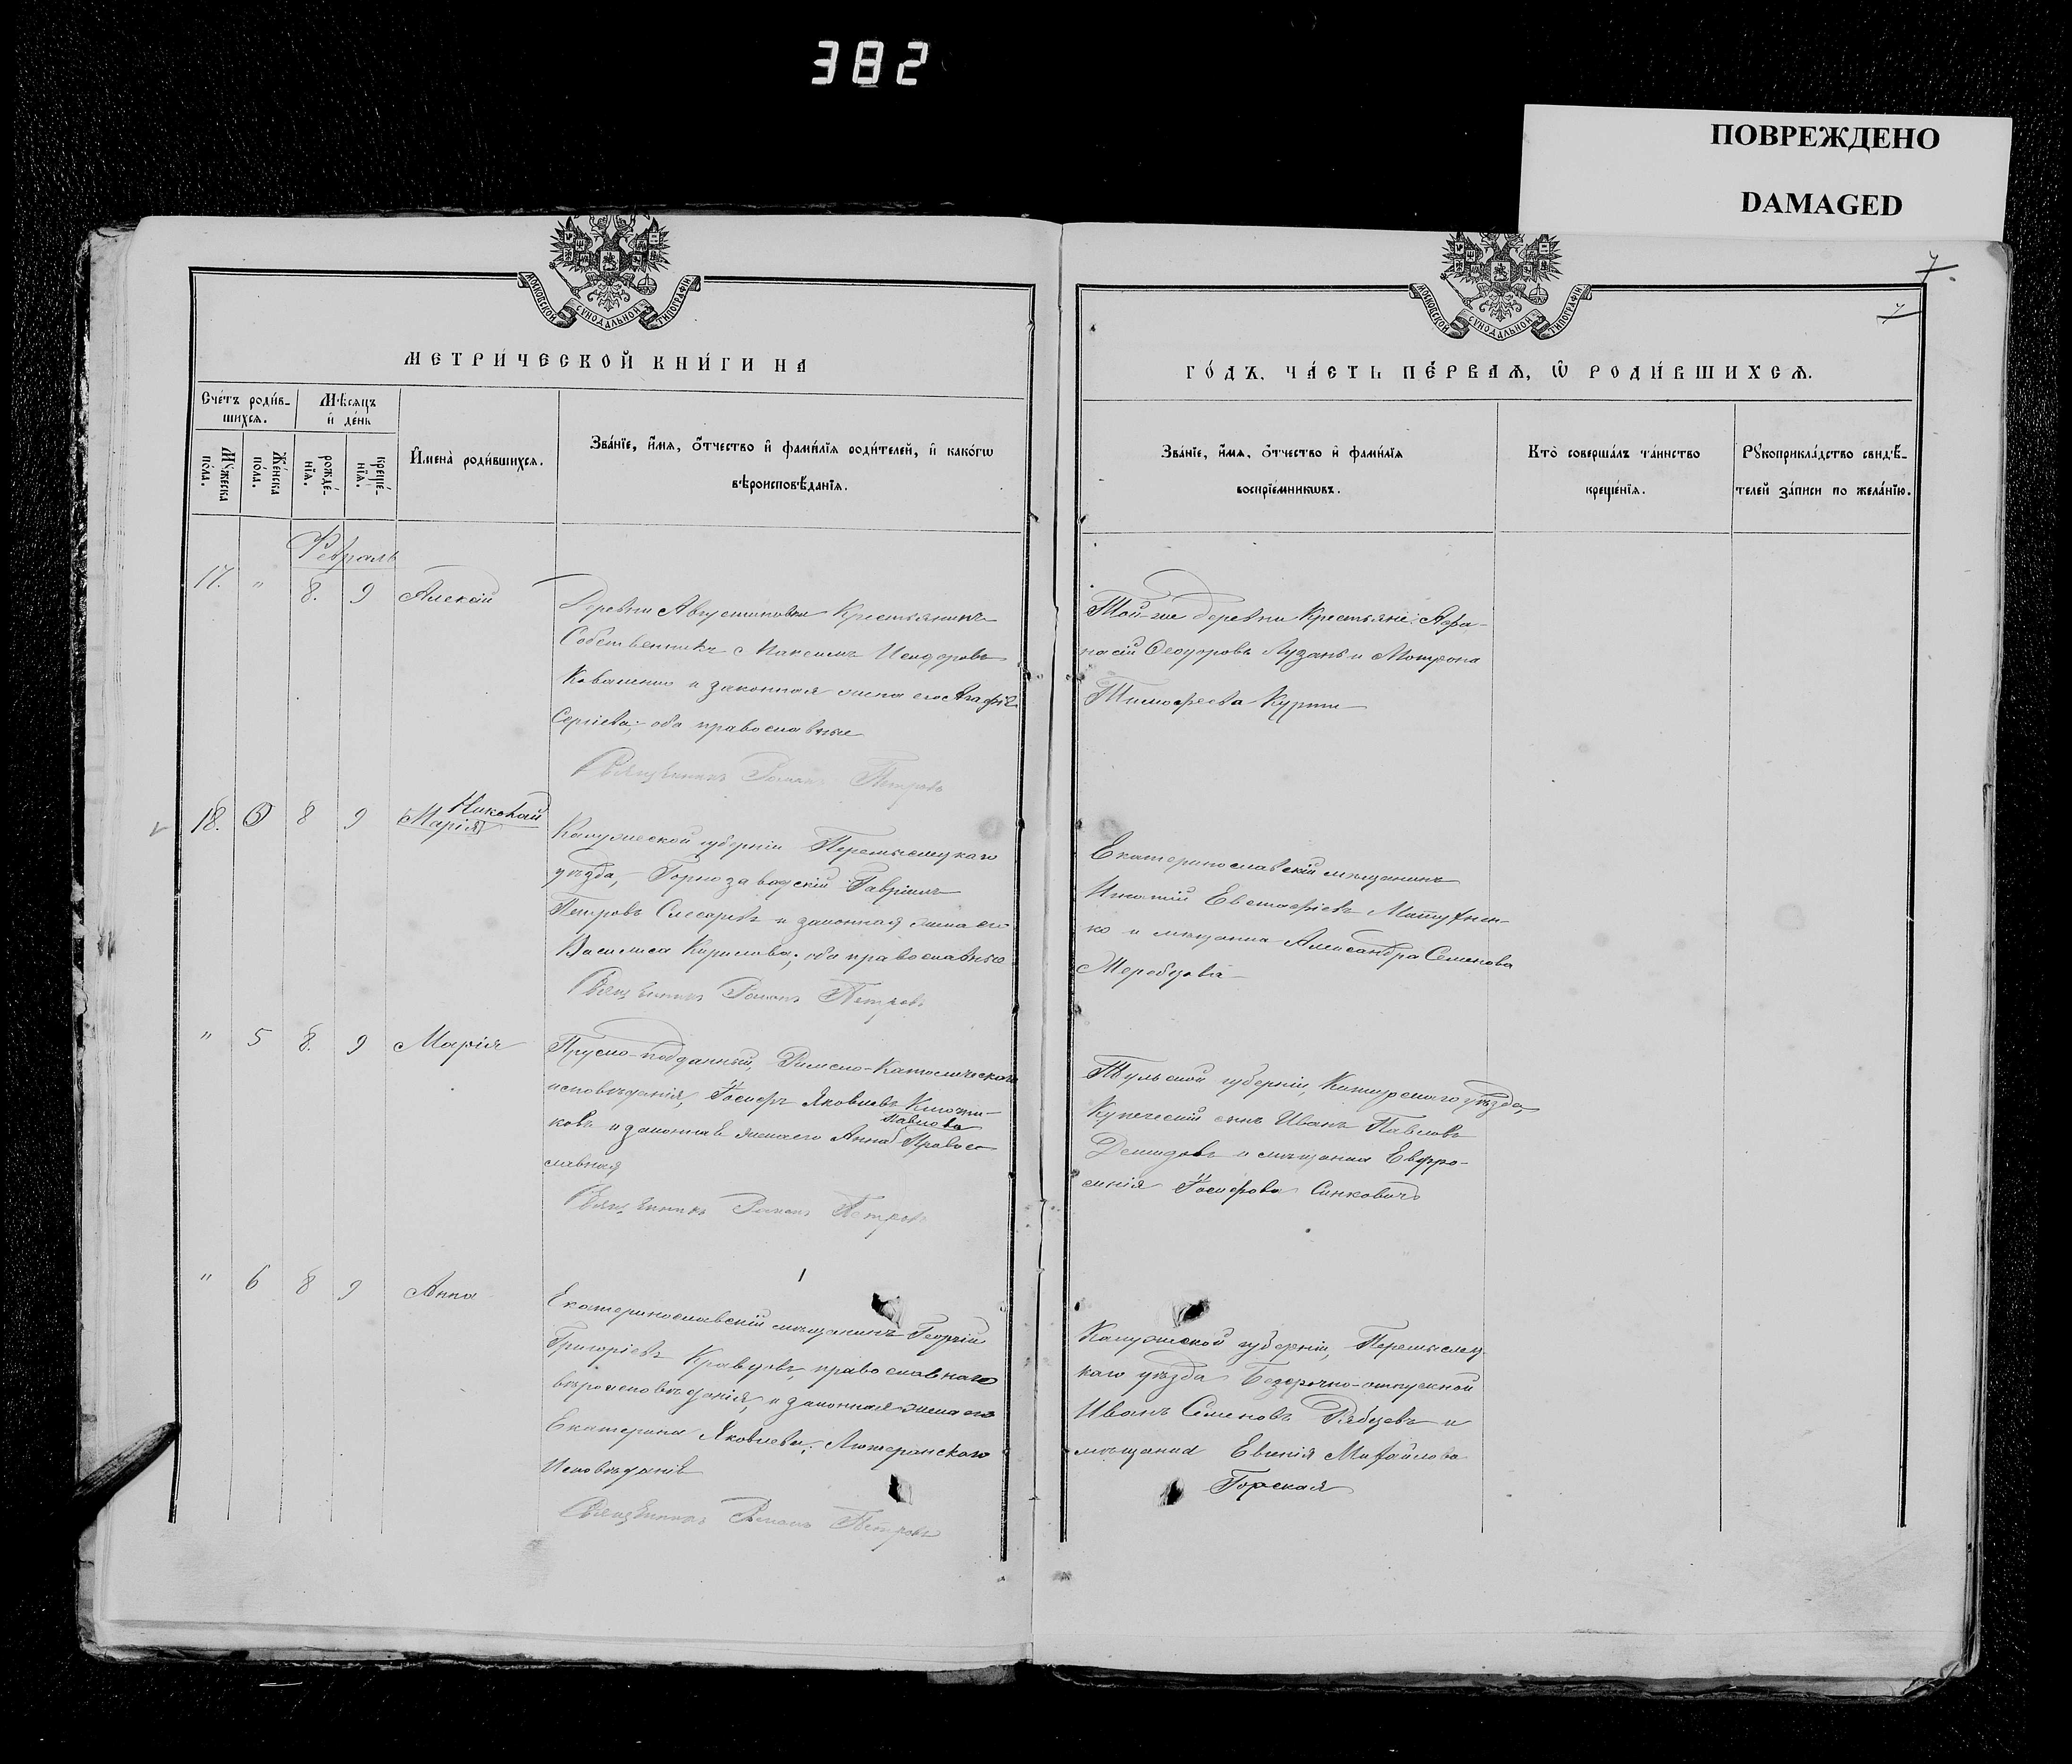 382
ПОВРЕЖДЕНО
DAMAGED
7
7
МОСКОВСКОЙ СѴНОДАЛЬНОЙ ТИПОГРАФІИ
МОСКОВСКОЙ СѴНОДАЛЬНОЙ ТИПОГРАФІИ
МЕТРИ́ЧЕСКОЙ КНИ́ГИ НА
ГО́ДЪ, ЧА́СТЬ ПЕ́РВАѦ, Ѽ РОДИ́ВШИХСѦ.
Сче́тъ роди́в-
шихсѧ.
Мꙋ́жеска
по́ла.
Же́нска
по́ла.
Мѣ́сѧцъ
и҆ де́нь
рожде́-
нїѧ.
креще́-
нїѧ.
И҆мена̀ роди́вшихсѧ.
Зва́нїе, и҆́мѧ, ѻ҆́тчество и҆ фами́лїѧ роди́телей, и҆ како́гѡ
вѣроисповѣ́данїѧ.
Зва́нїе, и҆́мѧ, ѻ҆́тчество и҆ фами́лїѧ
воспрїе́мникѡвъ.
Кто̀ соверша́лъ та́инство
креще́нїѧ.
Рꙋкоприкла́дство свидѣ́-
телей за́писи по жела́нїю.
Февраль
17. " 8. 9 Алексій
Деревни Августиновки Крестьянинъ
Собственникъ Максимъ Исидоровъ
Коваленко и законная жена его Агафія
Сергіева; оба православные
Священникъ Романъ Петровъ
Той-же деревни Крестьяне: Афа-
насій Ѳеодоровъ Лузанъ и Мотрона
Тимофеева
18. 8 9 Николай
Марія
Калужеской губерніи Перемысецкаго
уѣзда, Горнозаводскій Гавріилъ
Петровъ Слесаревъ и законная жена его
Василиса Кирилова; оба православные
Священникъ Романъ Петровъ
Екатеринославскій мѣщанинъ
Игнатій Евстафіевъ
ко и мѣщанка Александра Семенова
" 5 8. 9 Марія
Прусско-подданный, Римско-Католическаго
исповѣданія, Іосифъ Яковлевъ
Павлова
ковъ и законная жена его Анна Правос-
лавная
Священникъ Романъ Петровъ
Тульской губерніи, Каширскаго уѣзда,
Купеческій сынъ Иванъ Павловъ
Демидовъ и мѣщанка Евфро-
синія Іосифова Синковичъ
" 6 8 9 Анна
Екатеринославскій мѣщанинъ Георгій
Григоріевъ Кравцовъ, православнаго
вѣроисповѣданія, и законная жена его
Екатерина Яковлева, Лютеранскаго
Исповѣданія
Священникъ Романъ Петровъ
Калужской губерніи, Перемысец-
каго уѣзда Безсрочно-отпускной
Иванъ Семеновъ Рябцевъ и
мѣщанка Евгенія Михайлова
Горская